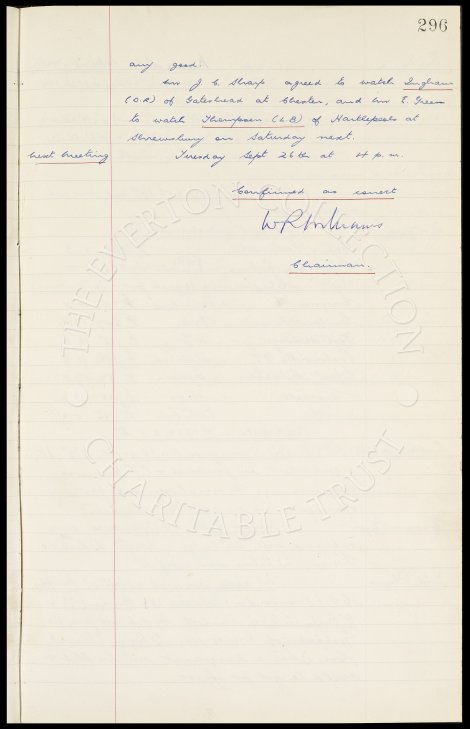 296
any good.
Mr J. C. Sharp agreed to watch Ingham
(O.R) of Gateshead at Chester, and Mr E. Green
to watch Thompson (L.B) of Hartlepools at
Shrewsbury on Saturday next.
Next Meeting Tuesday Sept 26th at 4 p.m.
Confirmed as correct
W R Williams
Chairman.
THE EVERTON COLLECTION
CHARITABLE TRUST